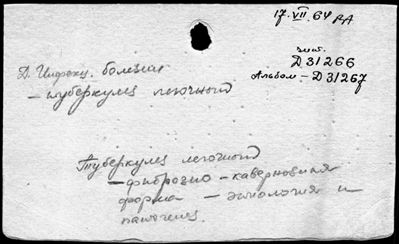 17.VII.64
Д 31266
Альбом - Д 31267
Д. Инфекц. болезни
- туберкулез легочной
Туберкулез легочной
- фиброзно - кавернозная
форма - этиология и
патогенез.